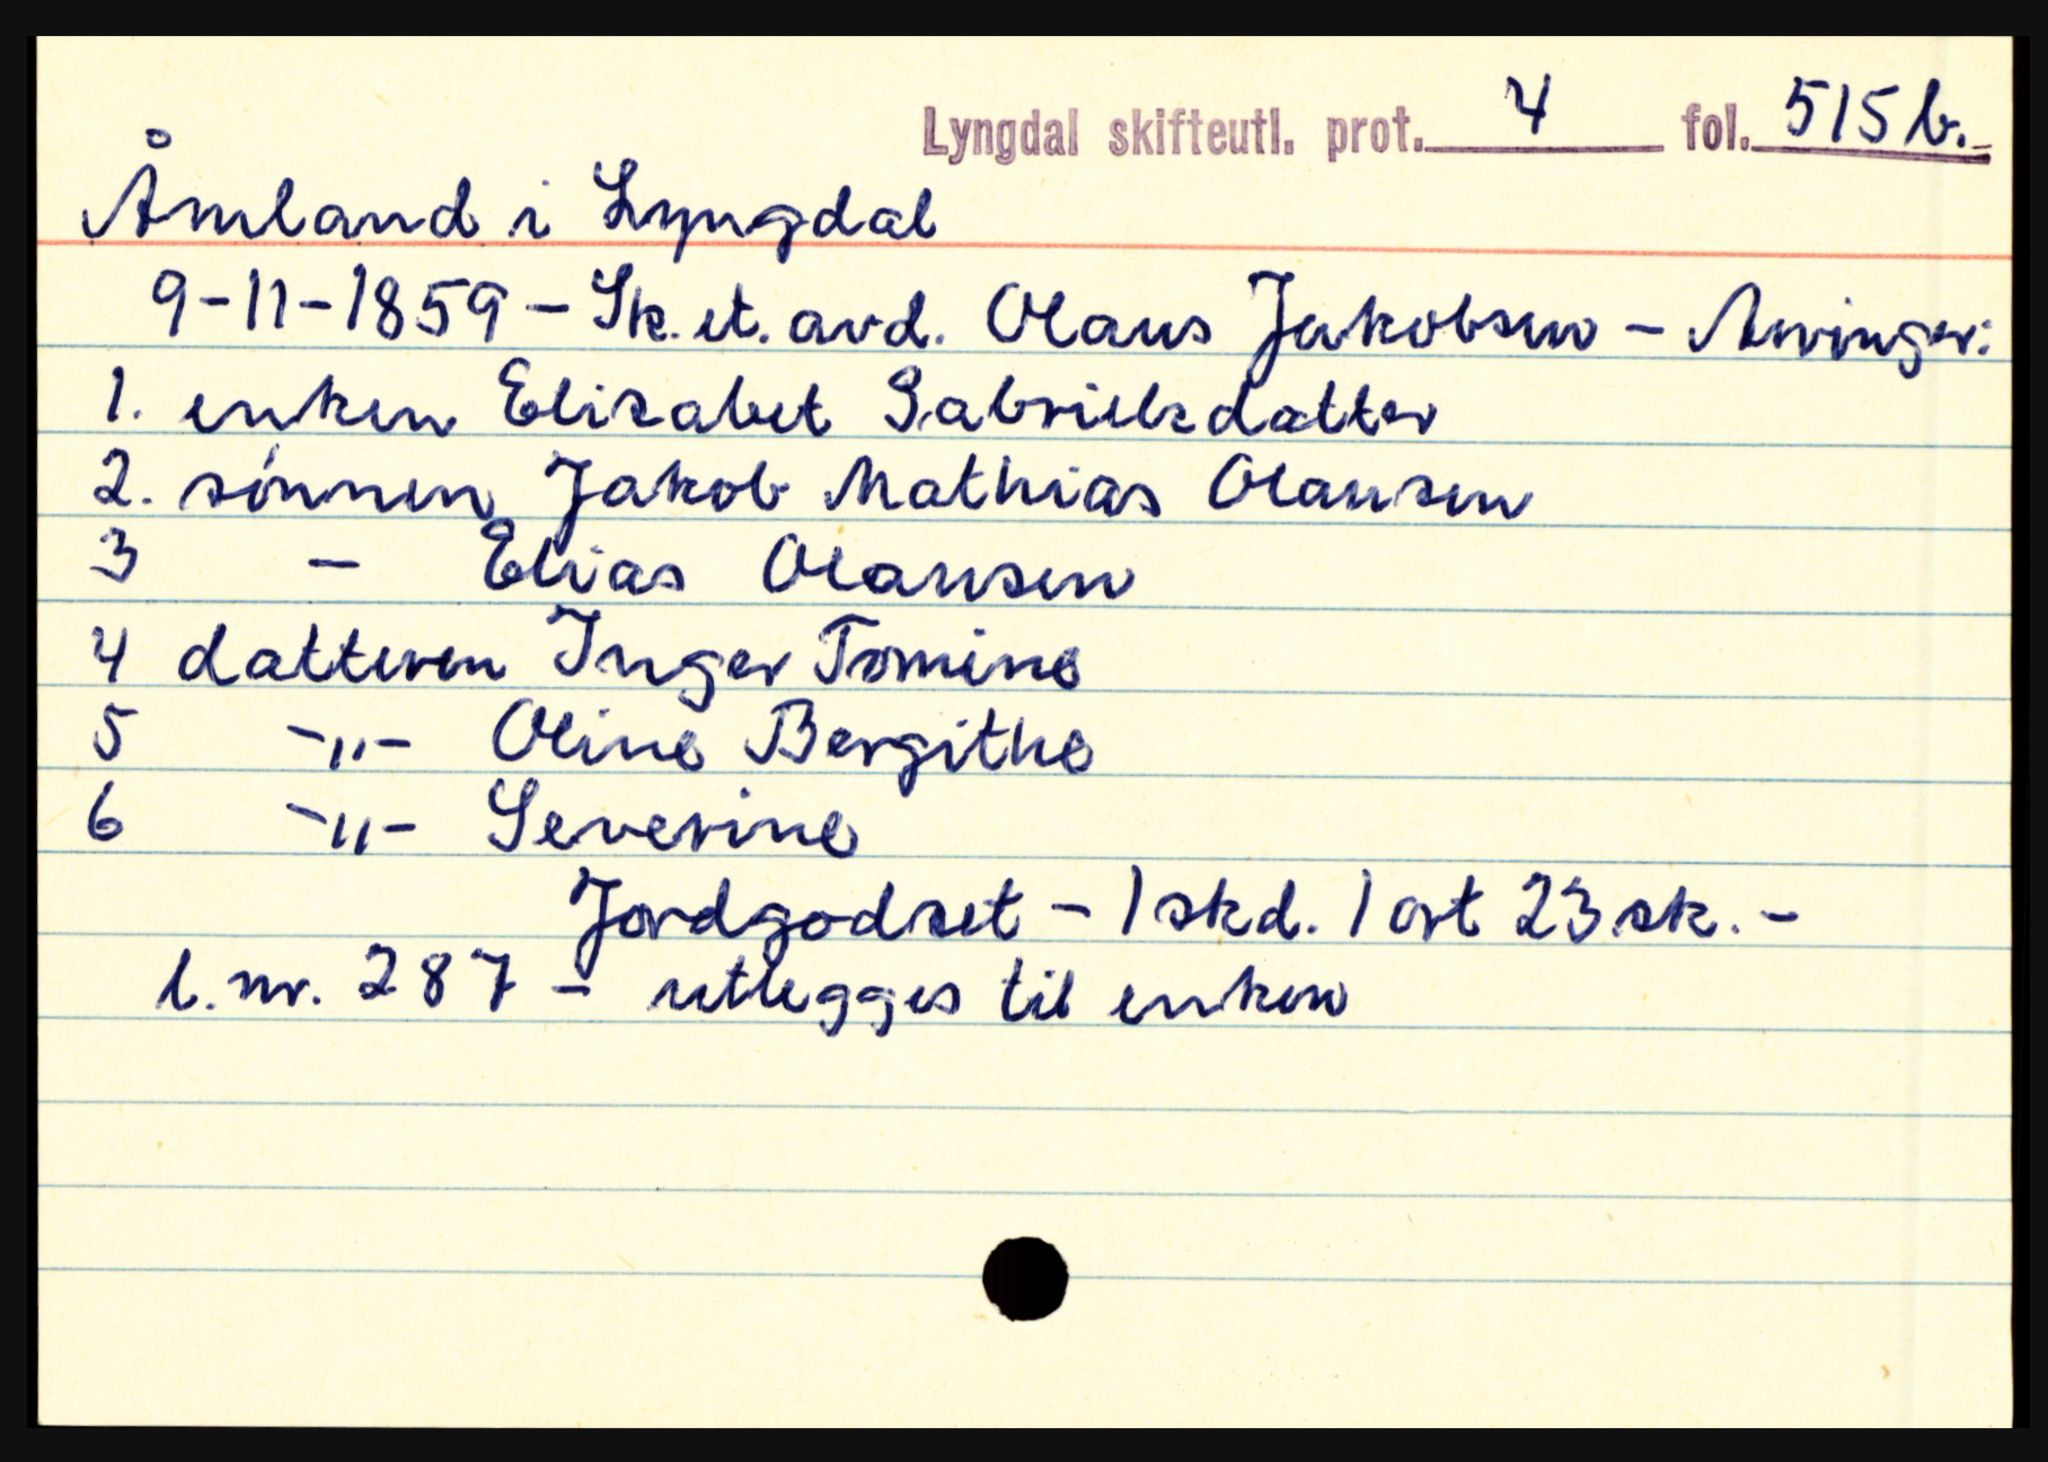 Lyngdal skifteutl. prot. 4 fol. 515 b.
Åmland i Lyngdal
9-11-1859 - Sk. et. avd. Olaus Jakobsen - Arvinger:
1. enken Elisabet Gabrielsdatter
2. sønnen Jakob Mathias Olausen
3 - Elias Olausen
4 datteren Inger Tomine
5 -"- Oline Bergithe
6 -"- Severine
Jordgodset - 1 skd. 1 ort 23 sk. -
l. nr. 287 - utlegges til enken